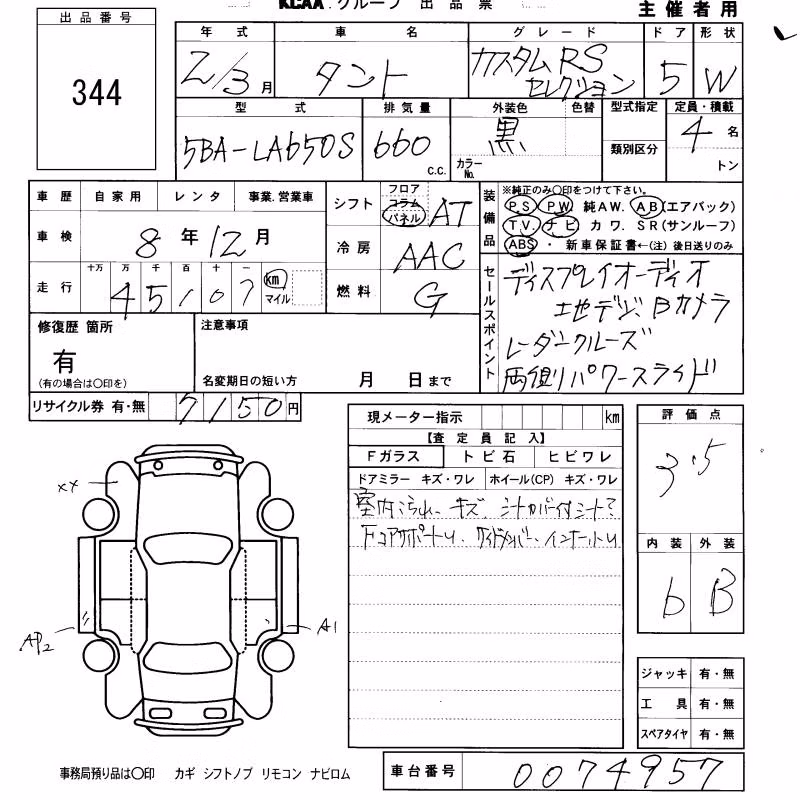 KCAA.グループ 出品票
主催者用
出品番号
344
年式 車名 グレード ドア 形状
2/3月 タント カスタムRS セレクション 5 W
型式 排気量 外装色 色替 型式指定 定員・積載
5BA-LA650S 660 C.C. 黒 カラーNo. 類別区分 4名
トン
車歴 自家用 レンタ 事業.営業車
車検 8年12月
走行 十万 万 千 百 十 一
45107 km マイル
シフト フロア コラム パネル AT
冷房 AAC
燃料 G
装備品 ※純正のみ○印をつけて下さい。
PS PW 純AW. AB(エアバック)
TV. ナビ カワ. SR(サンルーフ)
ABS ・ 新車保証書←(注) 後日送りのみ
セールスポイント
ディスプレイオーディオ
地デジ、Bカメラ
レーダークルーズ
両側パワースライド
修復歴 箇所
有
(有の場合は○印を)
注意事項
名変期日の短い方 月 日まで
リサイクル券 有・無 7150円
現メーター指示 km
【査定員記入】
Fガラス トビ石 ヒビワレ
ドアミラー キズ・ワレ ホイール(CP) キズ・ワレ
室内汚れ、キズ、
評価点
3.5
内装 外装
b B
××
AP2
A1
ジャッキ 有・無
工具 有・無
スペアタイヤ 有・無
事務局預り品は○印 カギ シフトノブ リモコン ナビロム
車台番号 0074957